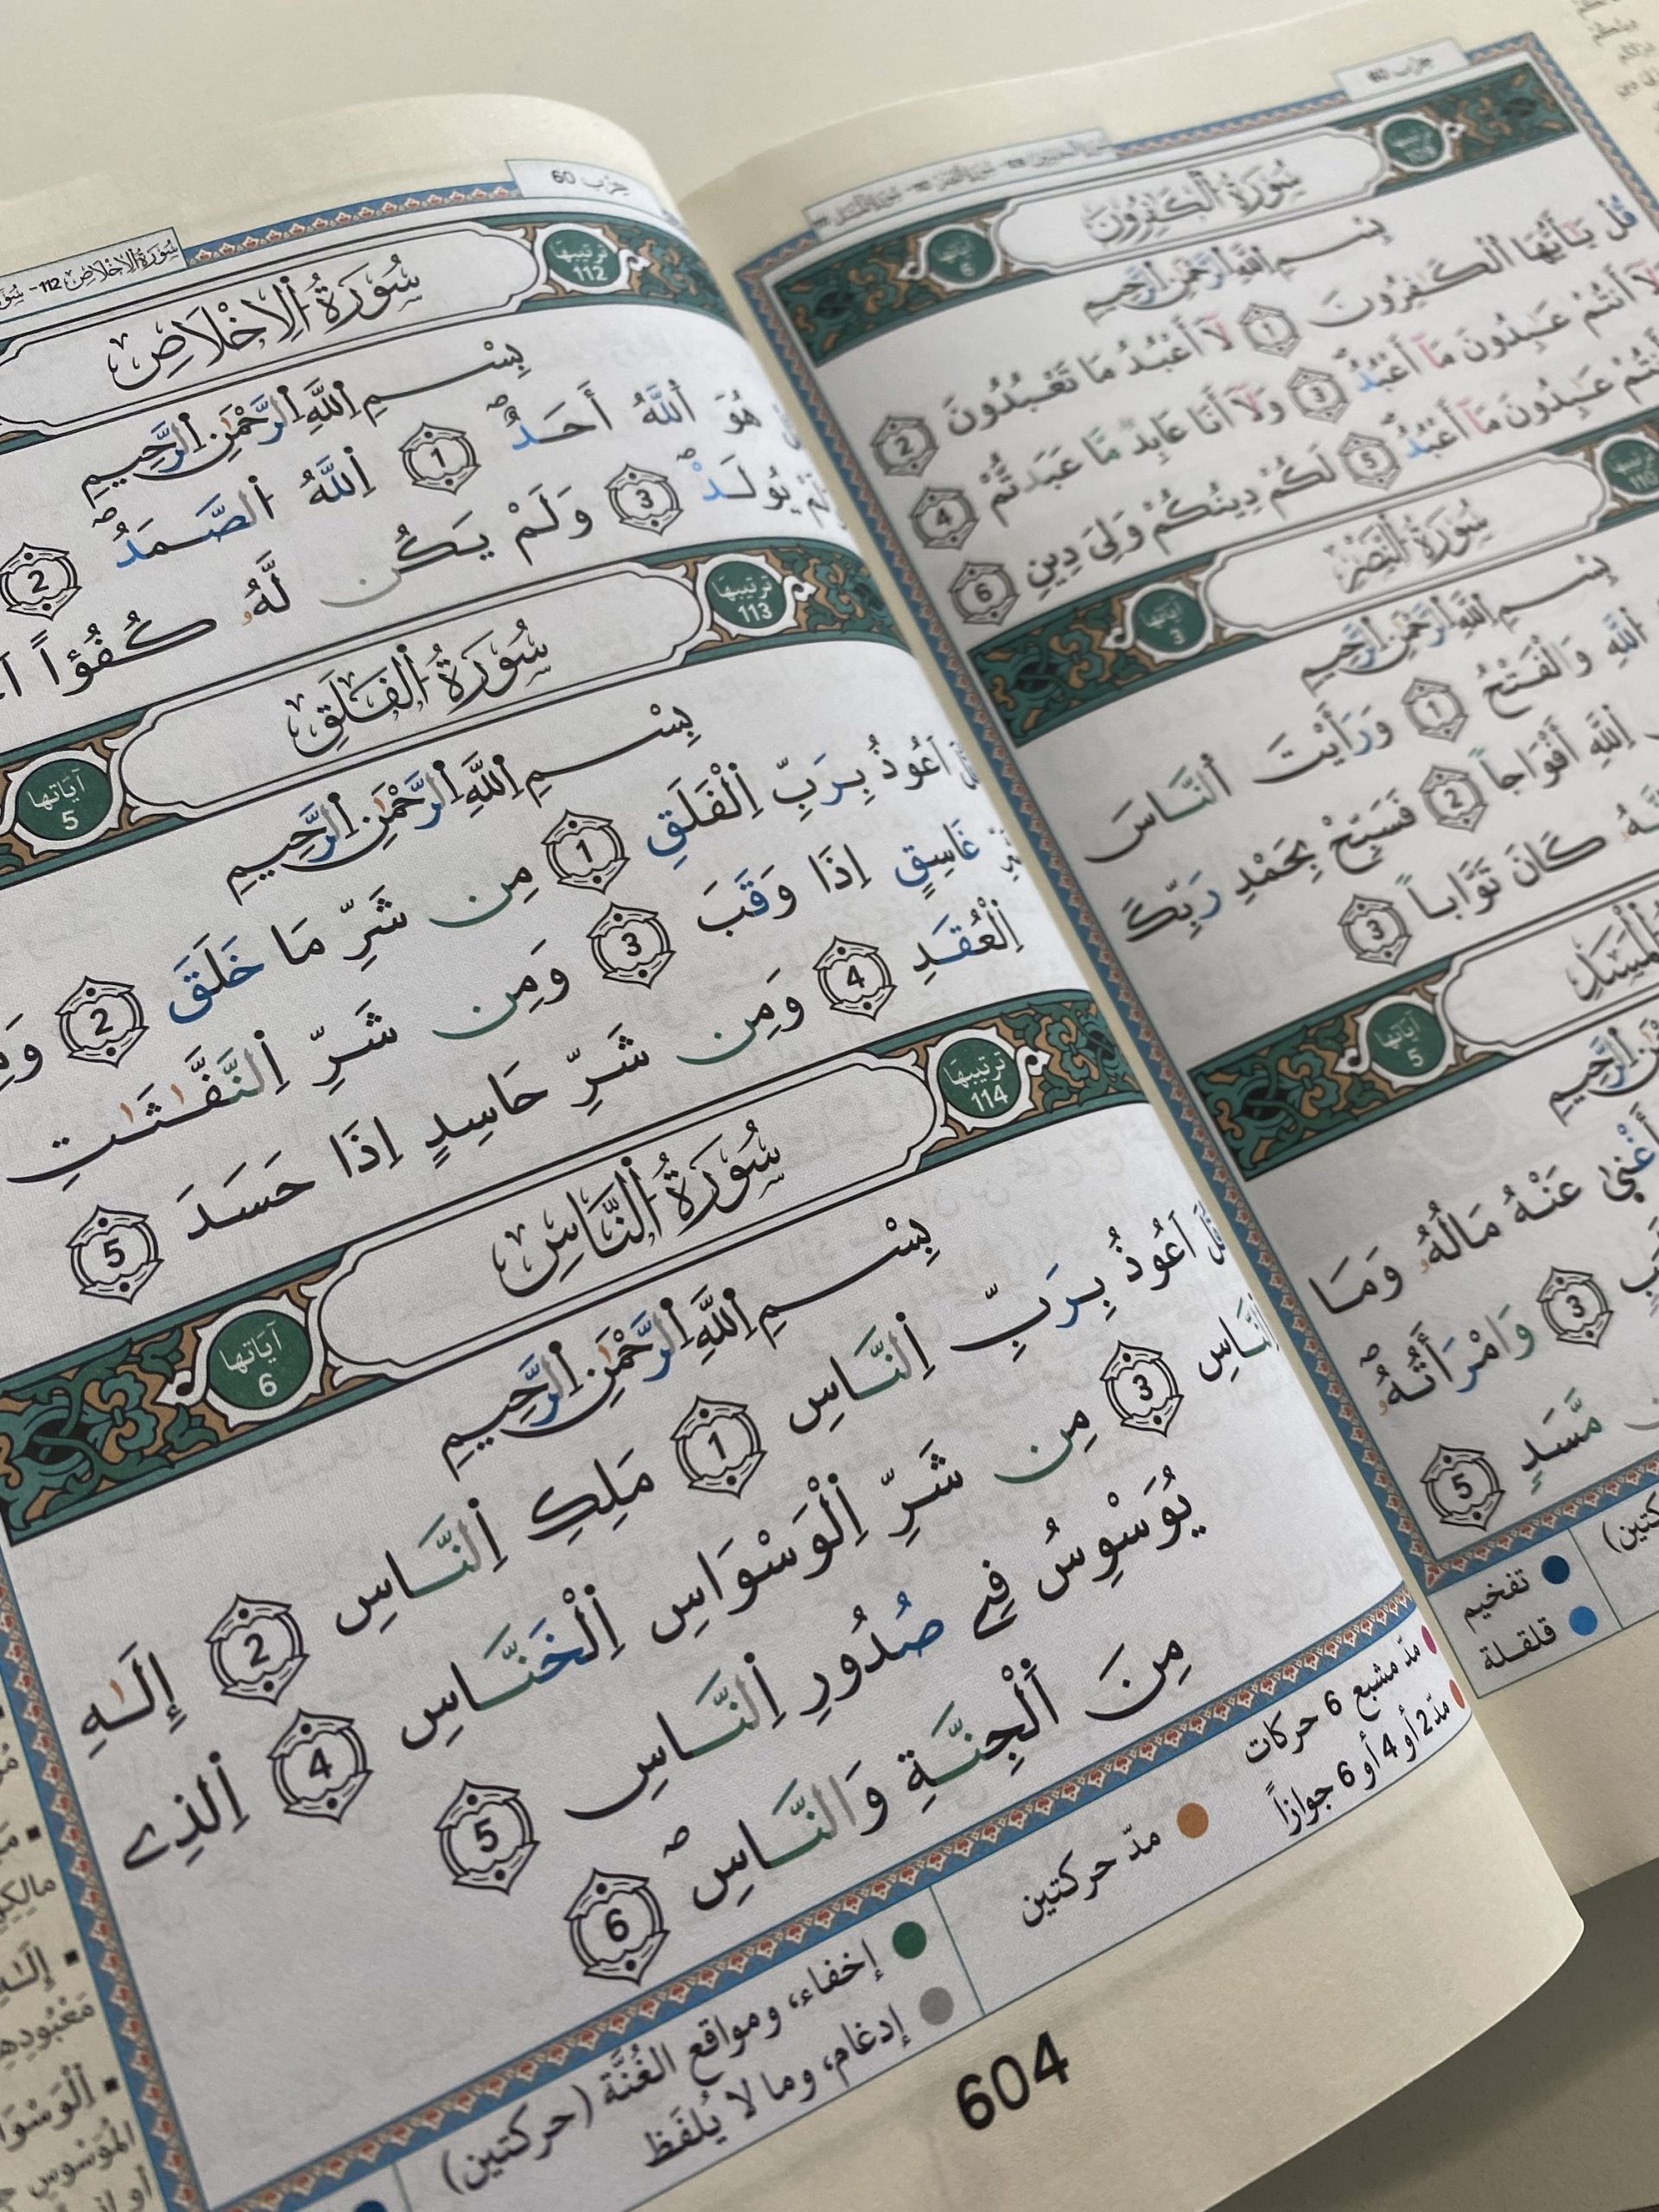 حزب 60
سُورَةُ الْكَٰفِرُونَ
آياتها 6
بِسْمِ اللَّهِ الرَّحْمَٰنِ الرَّحِيمِ
قُلْ يَٰٓأَيُّهَا الْكَٰفِرُونَ 1 لَآ أَعْبُدُ مَا تَعْبُدُونَ 2
أَنتُمْ عَٰبِدُونَ مَآ أَعْبُدُ 3 وَلَآ أَنَا عَابِدٌ مَّا عَبَدتُّمْ 4
أَنتُمْ عَٰبِدُونَ مَآ أَعْبُدُ 5 لَكُمْ دِينُكُمْ وَلِيَ دِينِ 6
ترتيبها 110
سُورَةُ النَّصْرِ
آياتها 3
بِسْمِ اللَّهِ الرَّحْمَٰنِ الرَّحِيمِ
اللَّهِ وَالْفَتْحُ 1 وَرَأَيْتَ النَّاسَ
اللَّهِ أَفْوَاجاً 2 فَسَبِّحْ بِحَمْدِ رَبِّكَ
كَانَ تَوَّاباً 3
آياتها 5
الرَّحِيمِ
أَغْنَىٰ عَنْهُ مَالُهُۥ وَمَا
3 وَامْرَأَتُهُۥ
مَّسَدٍ 5
تفخيم
قلقلة
سُورَةُ الْإِخْلَاصِ 112
حزب 60
ترتيبها 112
سُورَةُ اُلِاخْلَاصِ
بِسْمِ اِللَّهِ اِلرَّحْمَٰنِ اِلرَّحِيمِ
هُوَ اَللَّهُ أَحَدٌ 1 اَللَّهُ اُلصَّمَدُ 2
يُولَدْ 3 وَلَمْ يَكُن لَّهُۥ كُفُؤاً
ترتيبها 113
سُورَةُ اُلْفَلَقِ
آياتها 5
بِسْمِ اِللَّهِ اِلرَّحْمَٰنِ اِلرَّحِيمِ
قُلَ اَعُوذُ بِرَبِّ اِلْفَلَقِ 1 مِن شَرِّ مَا خَلَقَ 2
غَاسِقٍ اِذَا وَقَبَ 3 وَمِن شَرِّ اِلنَّفَّٰثَٰتِ
اِلْعُقَدِ 4 وَمِن شَرِّ حَاسِدٍ اِذَا حَسَدَ 5
ترتيبها 114
سُورَةُ اُلنَّاسِ
آياتها 6
بِسْمِ اِللَّهِ اِلرَّحْمَٰنِ اِلرَّحِيمِ
قُلَ اَعُوذُ بِرَبِّ اِلنَّاسِ 1 مَلِكِ اِلنَّاسِ 2 إِلَٰهِ
اِلنَّاسِ 3 مِن شَرِّ اِلْوَسْوَاسِ اِلْخَنَّاسِ 4 اِلذِے
يُوَسْوِسُ فِے صُدُورِ اِلنَّاسِ 5
مِنَ اَلْجِنَّةِ وَالنَّاسِ 6
مدّ مشبع 6 حركات
مدّ 2 أو 4 أو 6 جوازاً
مدّ حركتين
إخفاء، ومواقع الغُنَّة (حركتين)
إدغام، وما لا يُلفَظ
604